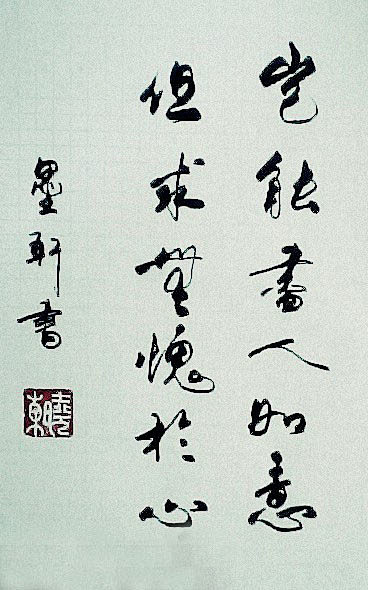 豈能盡人如意
但求無愧於心
墨軒書